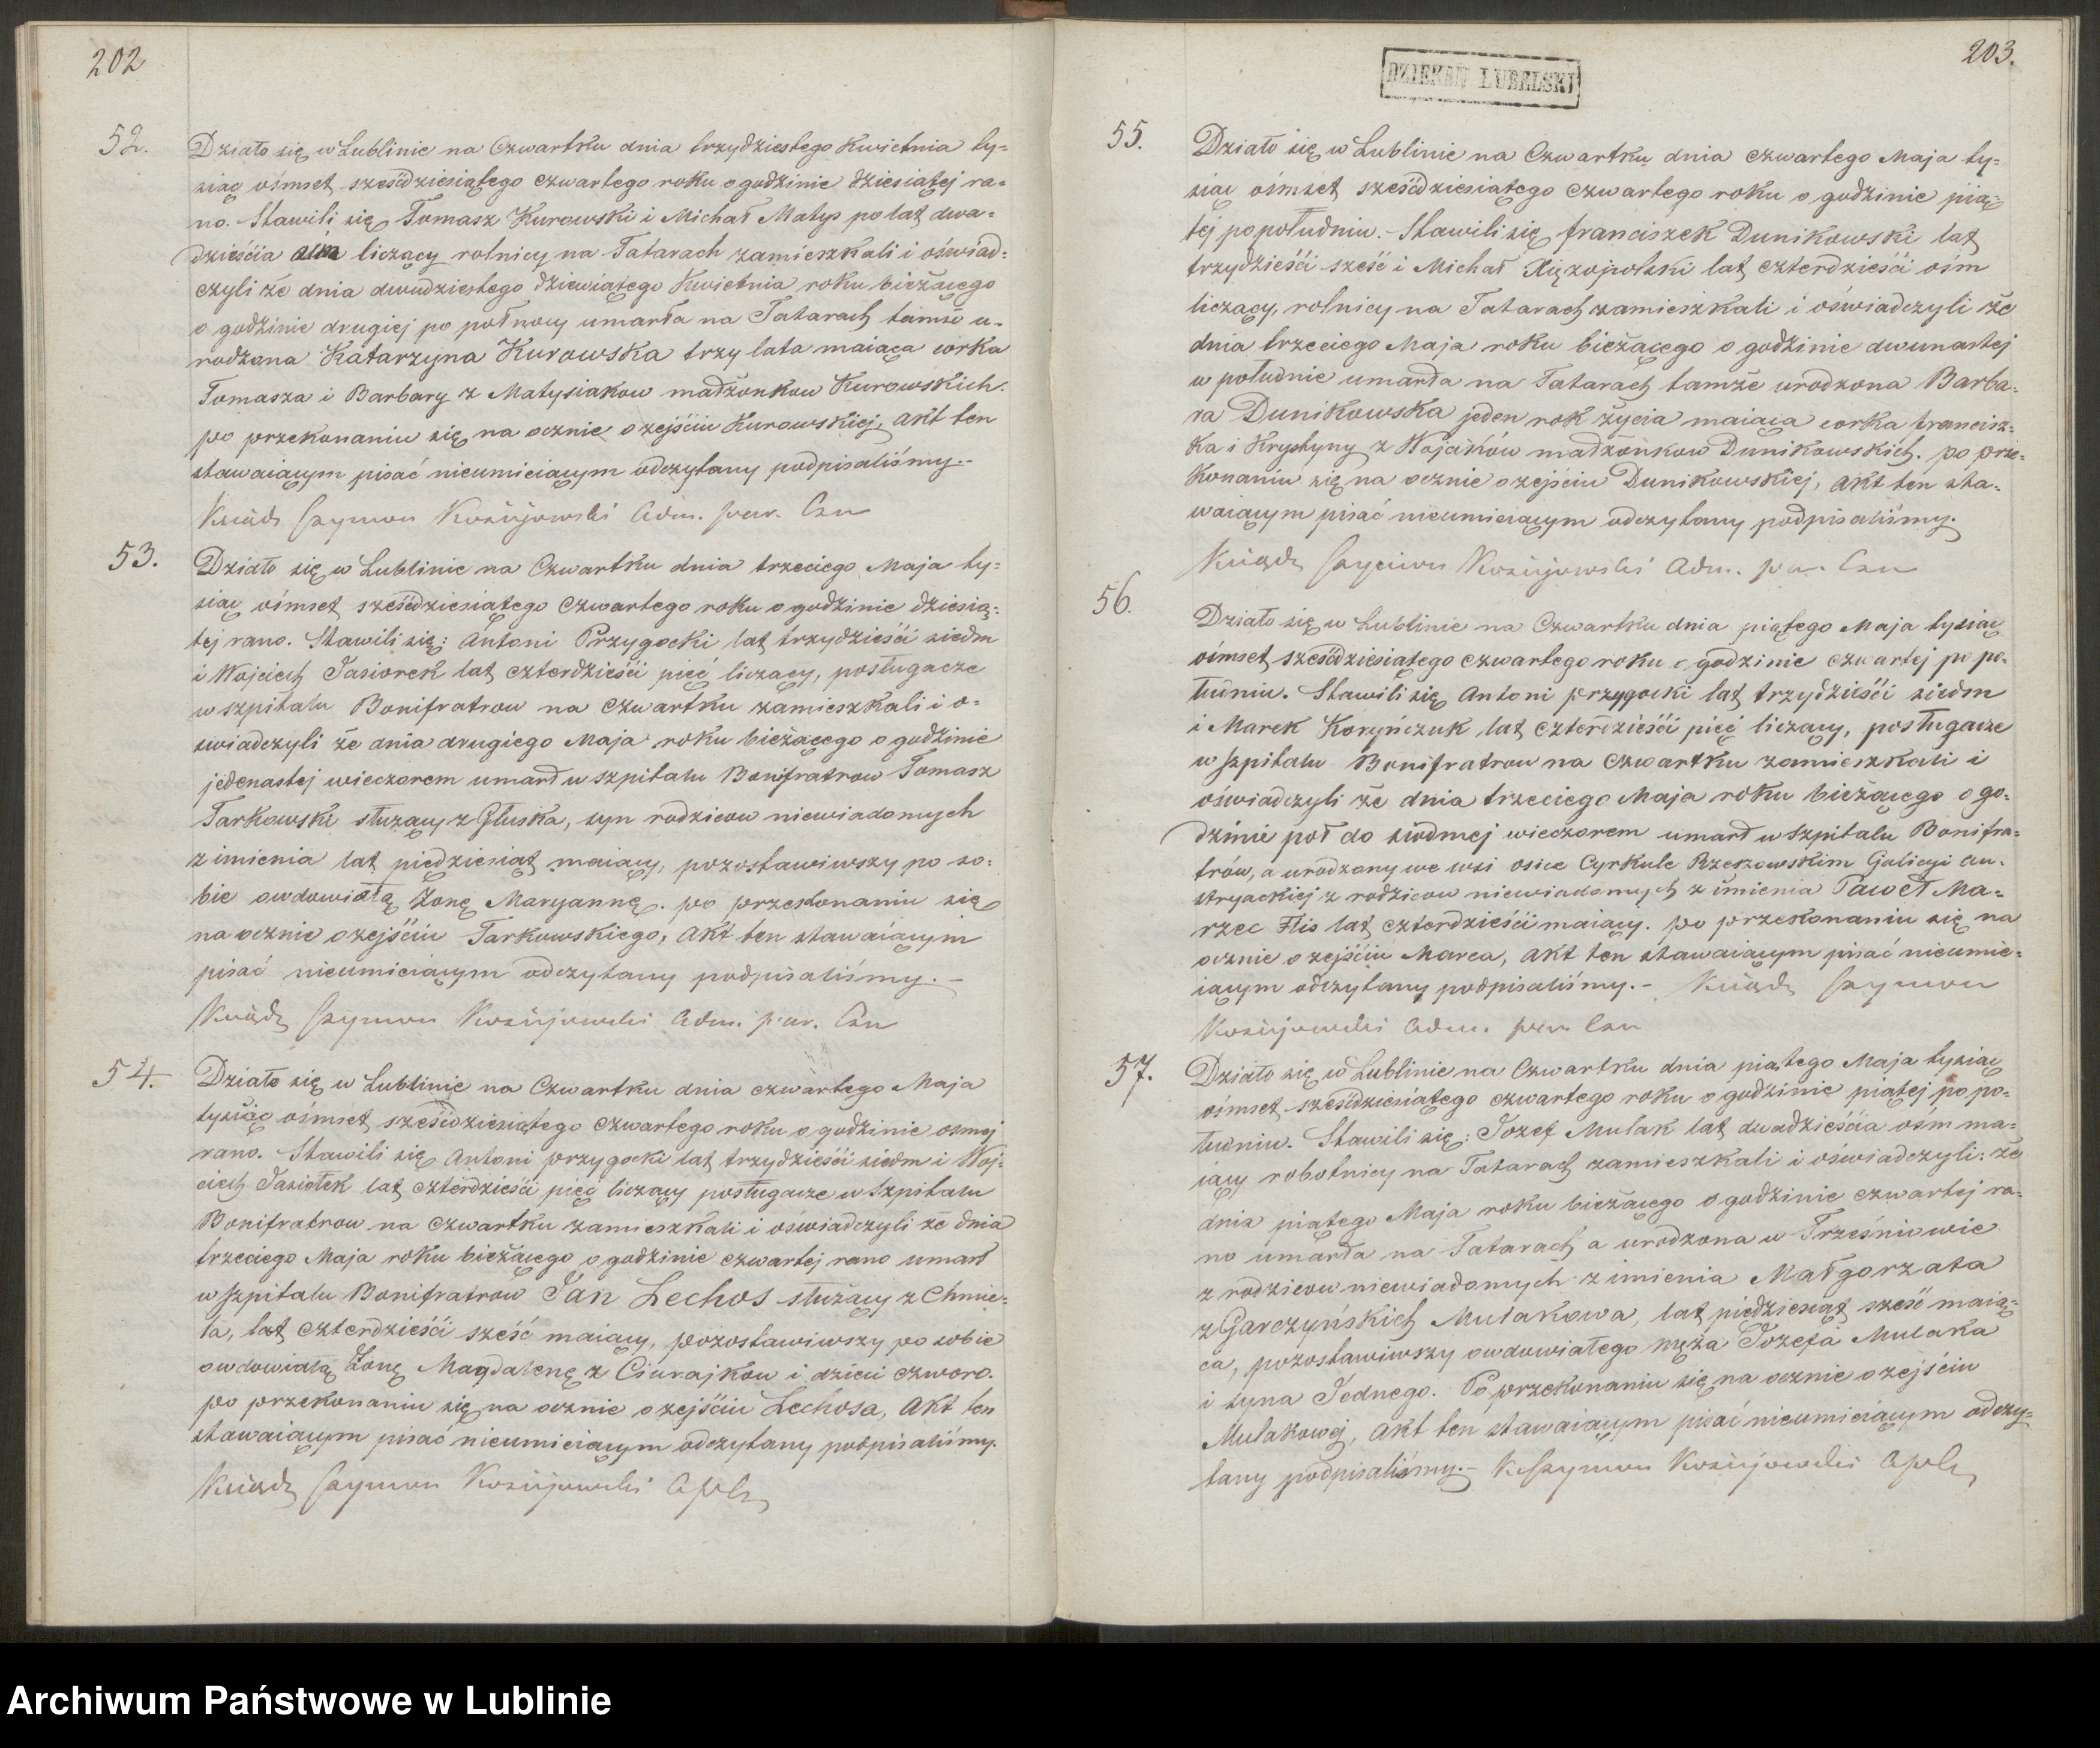 202
52.
Działo się w Lublinie na Czwartku dnia trzydziestego Kwietnia ty=
siąc ośmset sześćdziesiątego czwartego roku o godzinie dziesiątej ra=
no. Stawili się Tomasz Kurowski i Michał Matys po lat dwa=
dzieścia liczący rolnicy na Tatarach zamieszkali i oświad=
czyli że dnia dwudziestego dziewiątego Kwietnia roku bieżącego
o godzinie drugiej po połnocy umarła na Tatarach tamże u=
rodzona Katarzyna Kurowska trzy lata maiąca corka
Tomasza i Barbary z Matysiakow małżonkow Kurowskich.
po przekonaniu się na ocznie o zejściu Kurowskiej, akt ten
stawaiącym pisać nieumieiącym odczytany podpisaliśmy.-
Ksiądz Szymon Koziejowski Adm. par. Czw
53.
Działo się w Lublinie na Czwartku dnia trzeciego Maja ty=
siąc ośmset sześćdziesiątego czwartego roku o godzinie dziesią=
tej rano. Stawili się: Antoni Przygocki lat trzydzieści siedm
i Wojciech Jasiorek lat czterdzieści pięć liczący, posługacze
w szpitalu Bonifratrow na Czwartku zamieszkali i o=
swiadczyli że dnia drugiego Maja roku bieżącego o godzinie
jedenastej wieczorem umarł w szpitalu Bonifratrow Tomasz
Tarkowski służący z Głuska, syn rodzicow niewiadomych
z imienia lat piędziesiąt maiący, pozostawiwszy po so=
bie owdowiałą Zonę Maryannę. po przekonaniu się
na ocznie o zejściu Tarkowskiego, Akt ten stawaiącym
pisać nieumieiącym odczytany podpisaliśmy.-
Ksiądz Szymon Koziejowski Adm. par. Czw
54.
Działo się w Lublinie na Czwartku dnia czwartego Maja
tysiąc ośmset sześćdziesiątego czwartego roku o godzinie osmej
rano. Stawili się Antoni przygocki lat trzydzieści siedm i Woj=
ciech Jasiołek lat czterdzieści pięć liczący posługacze w Szpitalu
Bonifratrow na Czwartku zamieszkali i oświadczyli że dnia
trzeciego Maja roku bieżącego o godzinie czwartej rano umarł
w szpitalu Bonifratrow Jan Lechos służący z Chmie=
la, lat czterdzieści sześć maiący, pozostawiwszy po sobie
owdowiałą Zonę Magdalenę z Ciurajkow i dzieci czworo.
po przekonaniu się na ocznie o zejściu Lechosa, Akt ten
stawaiącym pisać nieumieiącym odczytany podpisaliśmy.
Ksiądz Szymon Koziejowski
203.
DZIEKAN LUBELSKI
55.
Działo się w Lublinie na Czwartku dnia czwartego Maja ty=
siąc ośmset sześćdziesiątego czwartego roku o godzinie pią=
tej popołudniu.- Stawili się franciszek Dunikowski lat
trzydzieści sześć i Michał Xiężopolski lat czterdzieści ośm
liczący, rolnicy na Tatarach zamieszkali i oświadczyli że
dnia trzeciego Maja roku bieżącego o godzinie dwunastej
w południe umarła na Tatarach tamże urodzona Barba=
ra Dunikowska jeden rok życia maiąca corka francisz=
ka i Krystyny z Wojaków małżonkow Dunikowskich. po prze=
konaniu się na ocznie o zejściu Dunikowskiej, akt ten sta=
waiącym pisać nieumieiącym odczytany podpisaliśmy.
Ksiądz Szymon Koziejowski Adm. par. Czw
56.
Działo się w Lublinie na Czwartku dnia piątego Maja tysiąc
ośmset sześćdziesiątego czwartego roku o godzinie czwartej po po=
łudniu. Stawili się Antoni przygocki lat trzydzieści siedm
i Marek Koryńczuk lat czterdzieści pięć liczący, posługacze
w szpitalu Bonifratrow na Czwartku zamieszkali i
oświadczyli że dnia trzeciego Maja roku bieżącego o go=
dzinie poł do siodmej wieczorem umarł w Szpitalu Bonifra=
trów, a urodzony we wsi osice Cyrkule Rzeszowskim Galicyi au=
stryackiej z rodzicow niewiadomych z imienia Paweł Ma=
rzec Flis lat czterdzieści maiący. po przekonaniu się na
ocznie o zejściu Marca, akt ten stawaiącym pisać nieumie=
iącym odczytany podpisaliśmy.- Ksiądz Szymon
Koziejowski Adm. par. Czw
57.
Działo się w Lublinie na Czwartku dnia piątego Maja tysiąc
ośmset sześćdziesiątego czwartego roku o godzinie piątej po po=
łudniu. Stawili się: Jozef Mulak lat dwadzieścia ośm ma=
iący robotnicy na Tatarach zamieszkali i oświadczyli: że
dnia piątego Maja roku bieżącego o godzinie czwartej ra=
no umarła na Tatarach a urodzona w Trześniowie
z rodzicow niewiadomych z imienia Małgorzata
z Garczyńskich Mulakowa, lat piędziesiąt sześć maią=
ca, pozostawiwszy owdowiałego męża Jozefa Mulaka
i syna Jednego. Po przekonaniu się na ocznie o zejściu
Mulakowej, Akt ten stawaiącym pisać nieumieiącym odczy=
tany podpisaliśmy.- K Szymon Koziejowski
Archiwum Państwowe w Lublinie